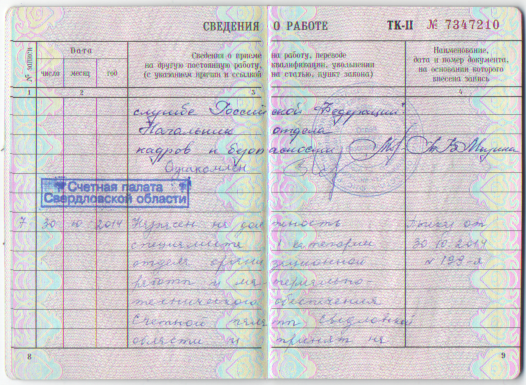 СВЕДЕНИЯ О РАБОТЕ
ТК-II № 7347210
№ записи
Дата
Сведения о приеме на работу, переводе
на другую постоянную работу, квалификации, увольнении
(с указанием причин и ссылкой на статью, пункт закона)
Наименование,
дата и номер документа,
на основании которого
внесена запись
число
месяц
год
1
2
3
4
службе Российской Федерации"
Начальник отдела
кадров и безопасности
Ознакомлен
Счетная палата
Свердловской области
7 30 10 2014 на должность
специалиста 1 категории
30.10.2014
отдела организационной
№ 193-л
работы и материально-
технического обеспечения
Счетной палаты Свердловской
области и принят на
8
9